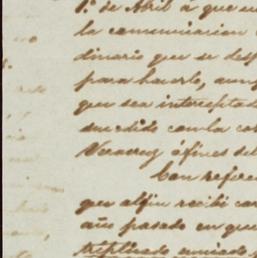 1º. de Abril a que
la comunicacion
dinario que se desp
para hacerlo, aunq
que sea interceptad
sucedido con la co
Veracruz á fines del
Con refere
que alfin recibi ca
año pasado en que
triplicado enviado